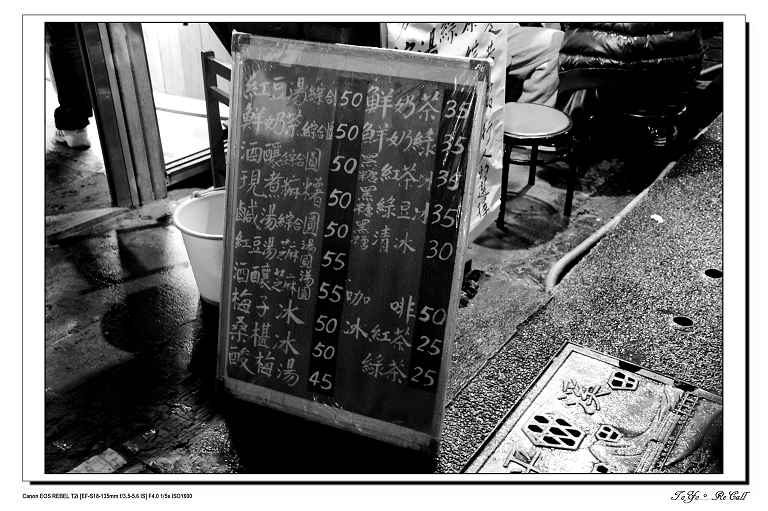 紅豆湯綜合 50
鮮奶茶綜合圓 50
酒釀綜合圓 50
現煮麻糬 50
鹹湯綜合圓 50
紅豆湯芝麻湯圓 55
酒釀芝麻湯圓 55
梅子冰 50
桑椹冰 50
酸梅湯 45
鮮奶茶 35
鮮奶綠 35
黑糖紅茶冰 35
黑糖綠豆冰 35
黑糖清冰 30
咖啡 50
冰紅茶 25
綠茶 25
Canon EOS REBEL T2i [EF-S18-135mm f/3.5-5.6 IS] F4.0 1/5s ISO1600
ToYo ReCall